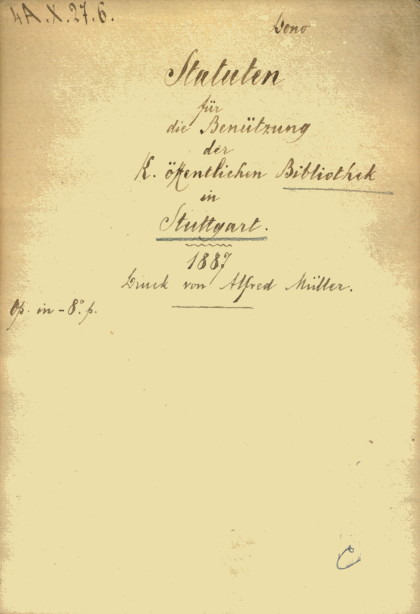 4A.X.27.6.
Dono
Statuten
für
die Benützung
der
K. öffentlichen Bibliothek
in
Stuttgart.
1887
Druck von Alfred Müller.
Op. in-8° p.
C